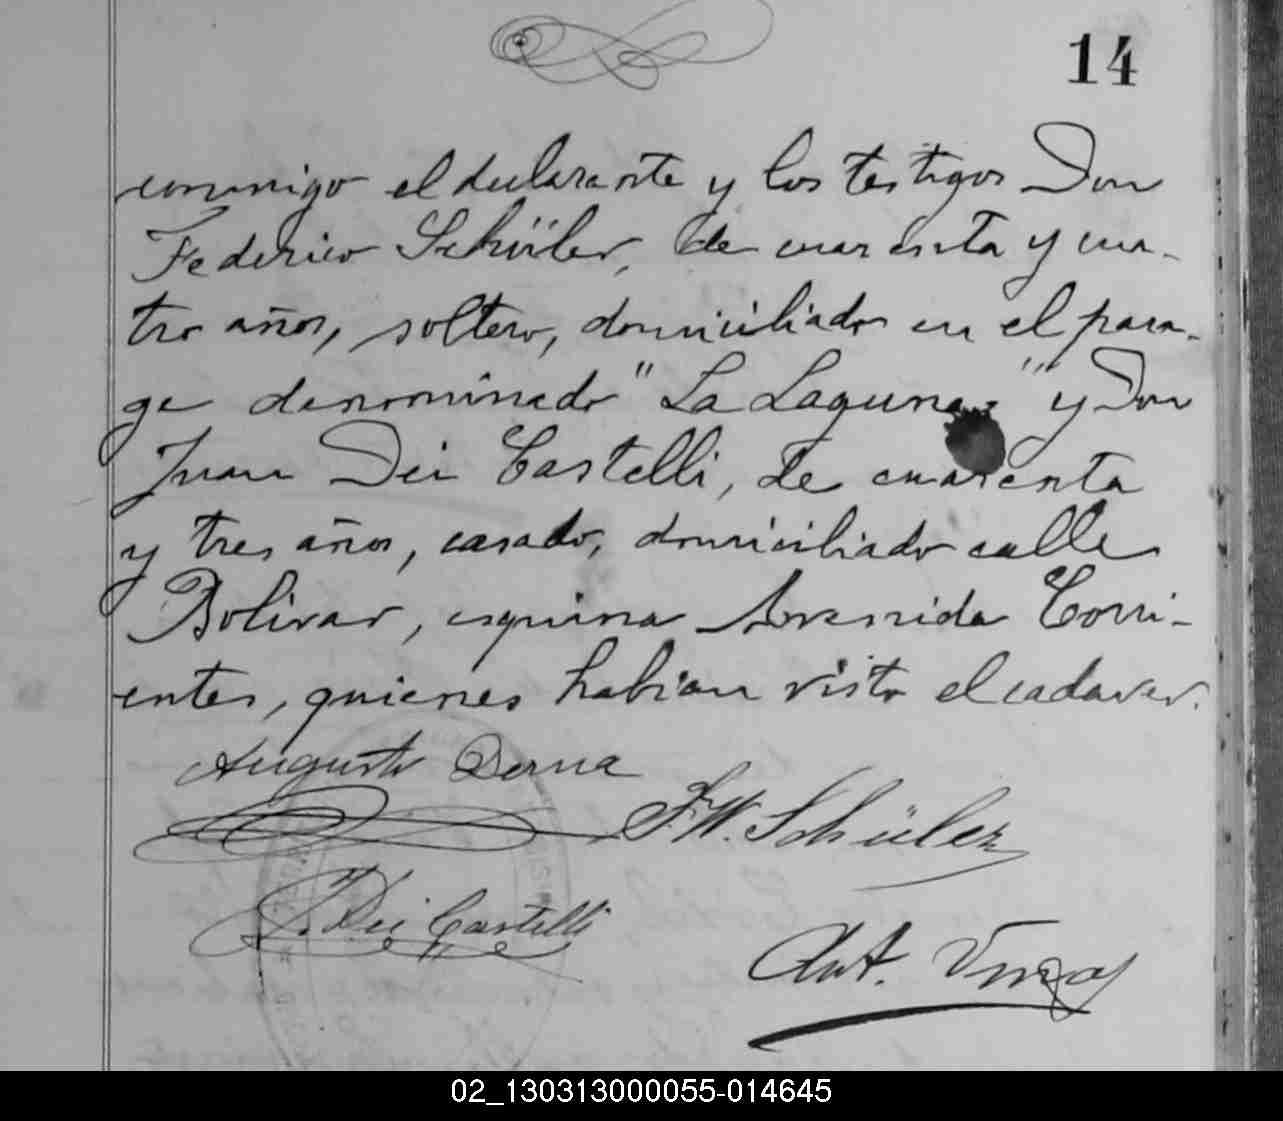 14
conmigo el declarante y los testigos Don
Federico Schüler, de cuarenta y cua-
tro años, soltero, domiciliado en el para-
ge denominado "La Laguna" y Don
Juan Dei Castelli, de cuarenta
y tres años, casado, domiciliado calle
Bolivar, esquina Avenida Corri-
entes, quienes habian visto el cadaver.
Augusto Serna
F. W. Schüler
J. Dei Castelli
Ant.
02_130313000055-014645